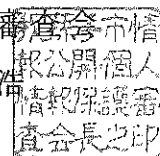 審査会
市情
報公開個人
浩
情報保護審
査会長之印